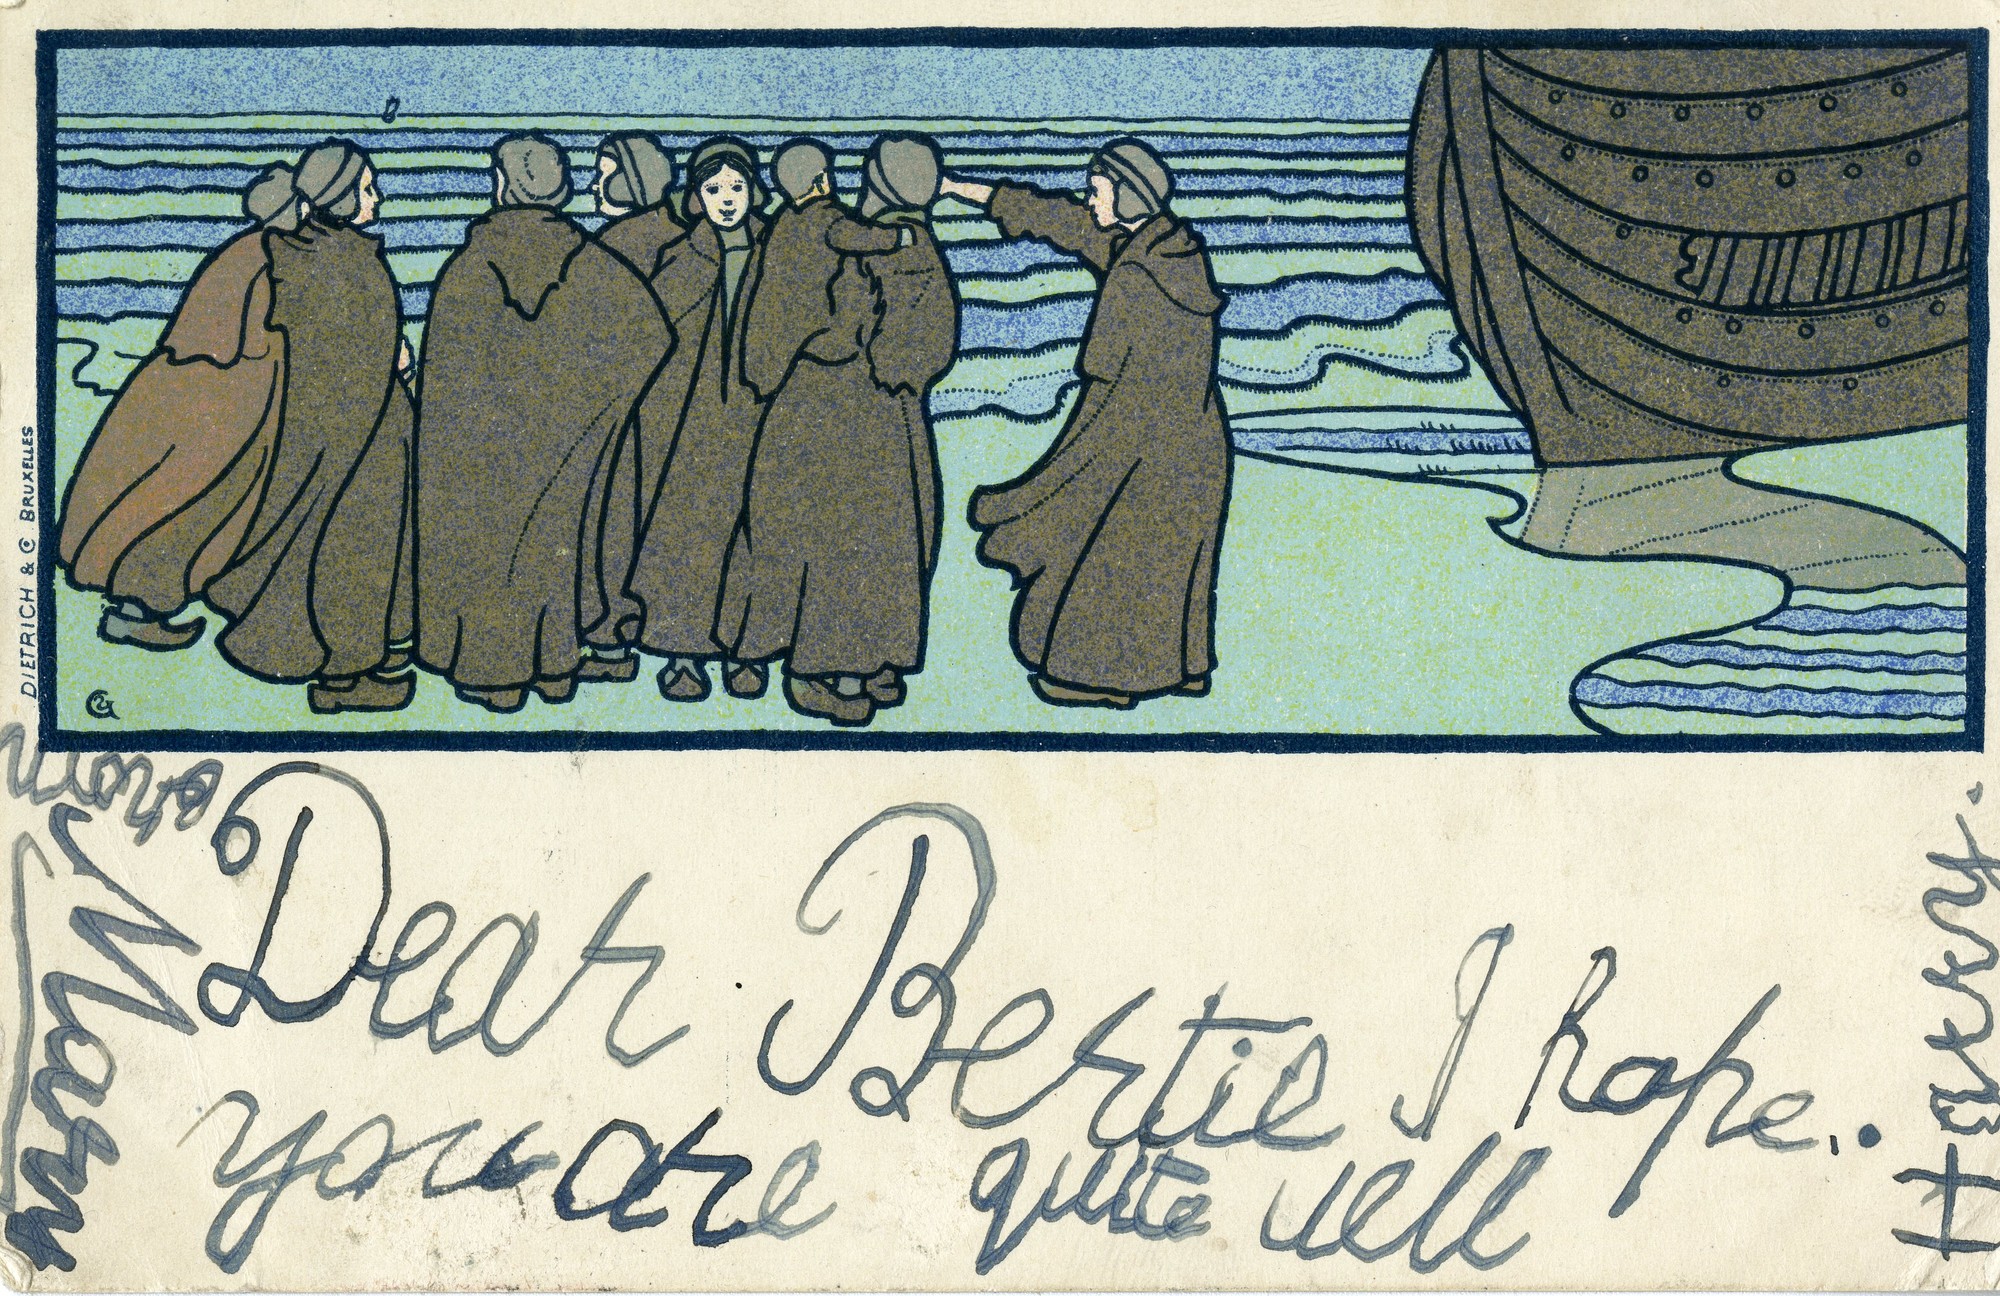 DIETRICH & Co BRUXELLES
Dear Bertie I hope.
you are quite well
from
Mary
Harry.